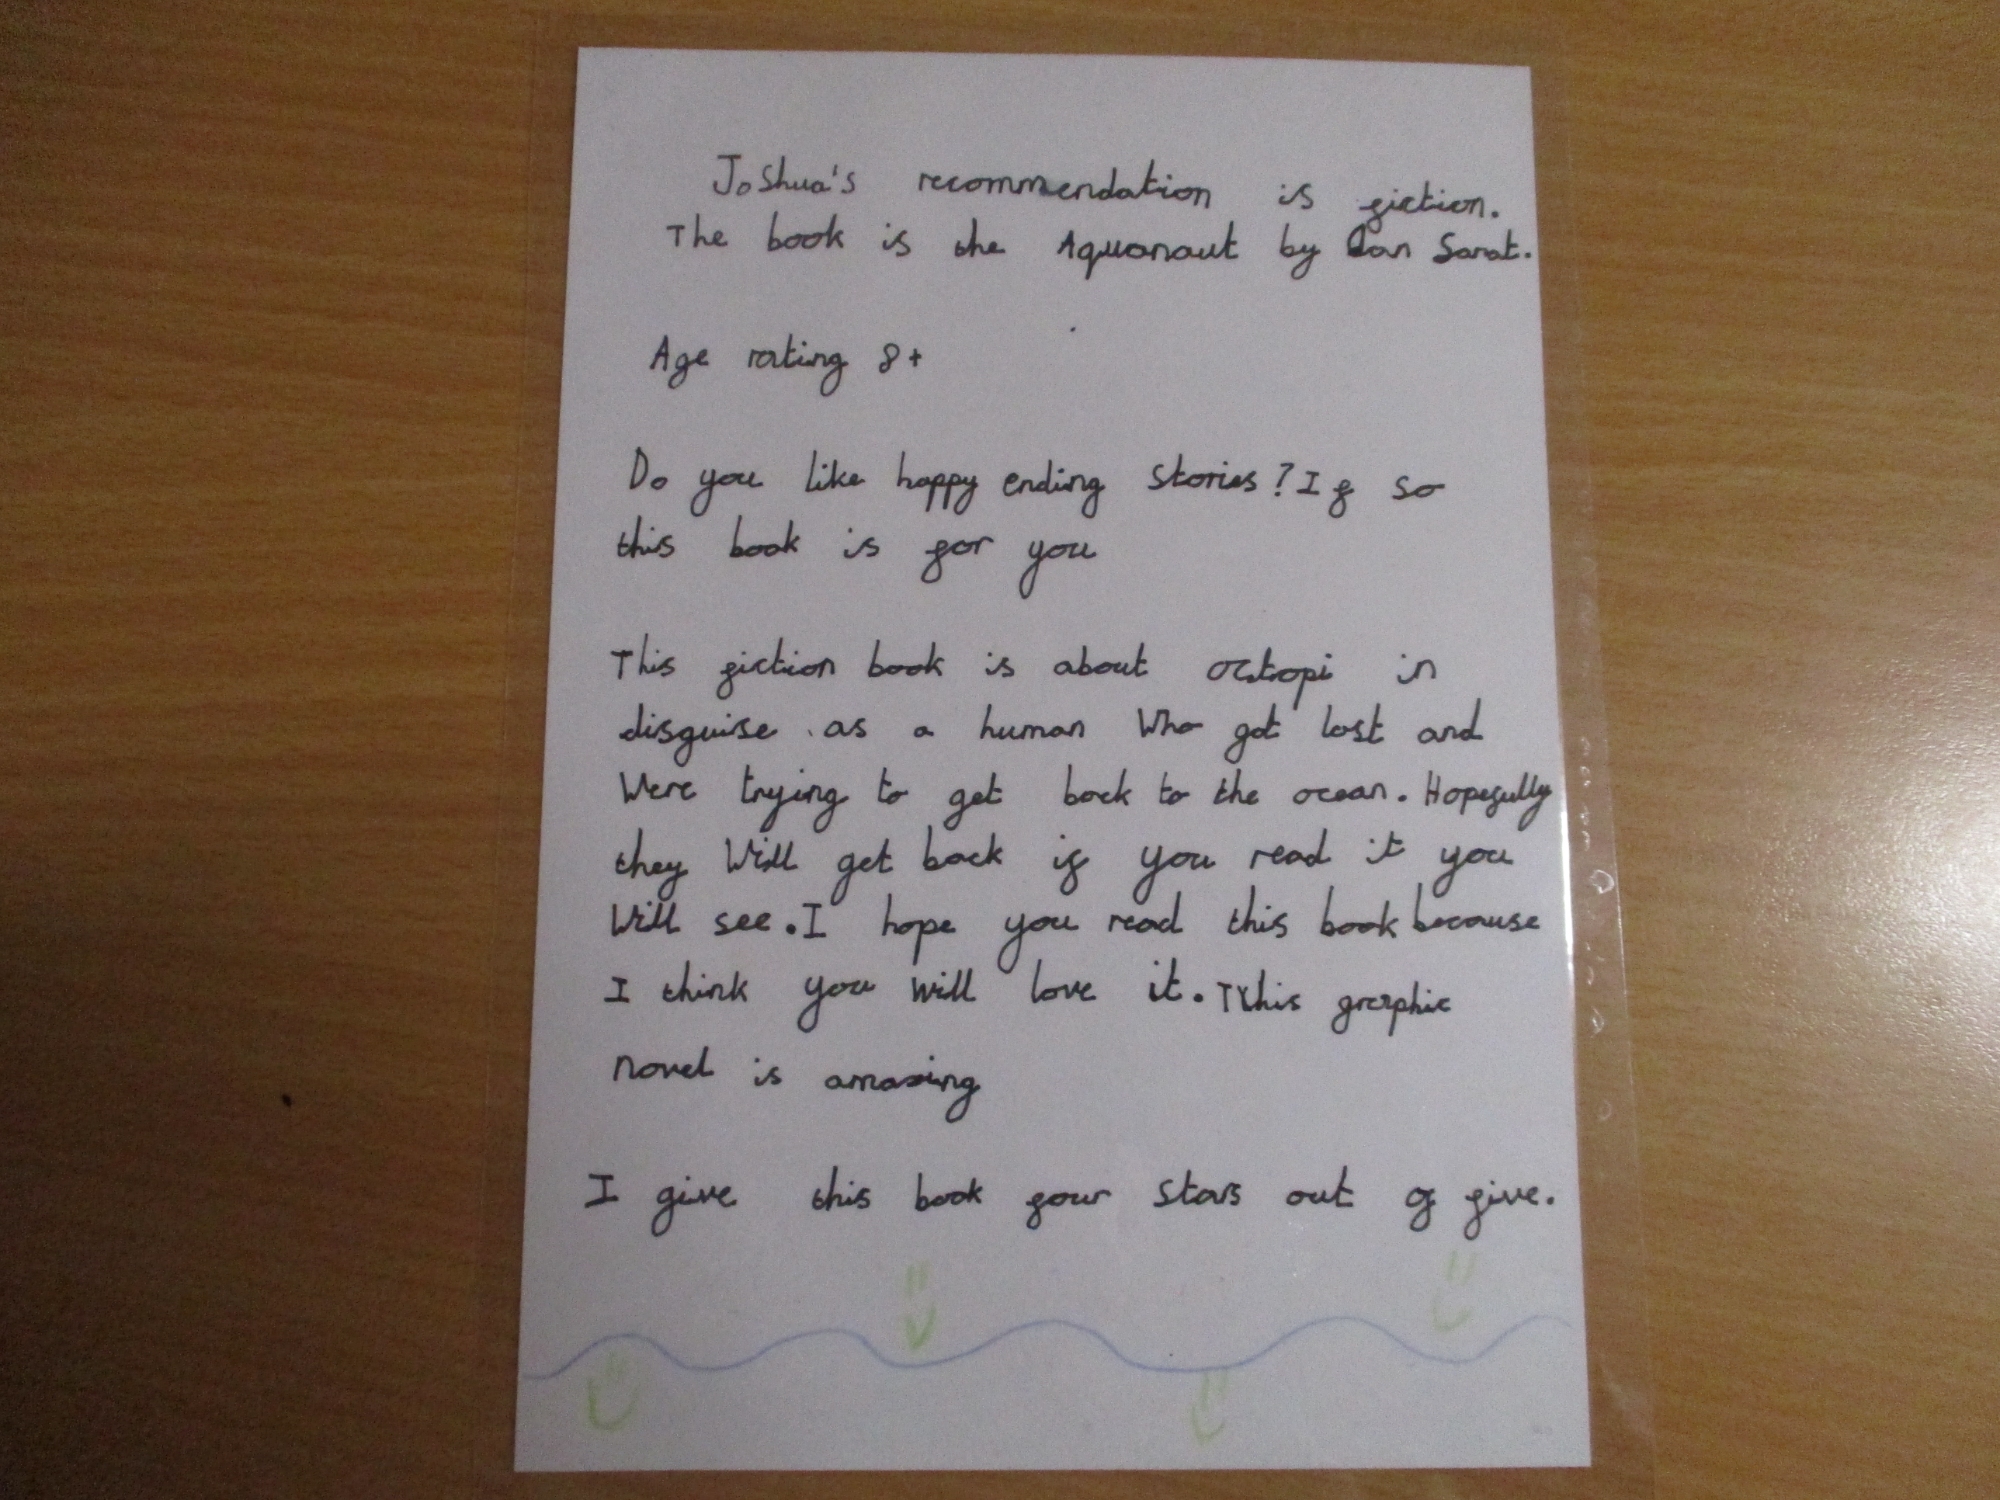 Joshua's recommendation is fiction.
The book is the Aquanaut by Dan Sanat.
Age rating 8+
Do you like happy ending stories? If so
this book is for you
This fiction book is about octopi in
disguise as a human who got lost and
were trying to get back to the ocean. Hopefully
they will get back if you read it you
will see. I hope you read this book because
I think you will love it. This graphic
novel is amazing
I give this book four stars out of five.